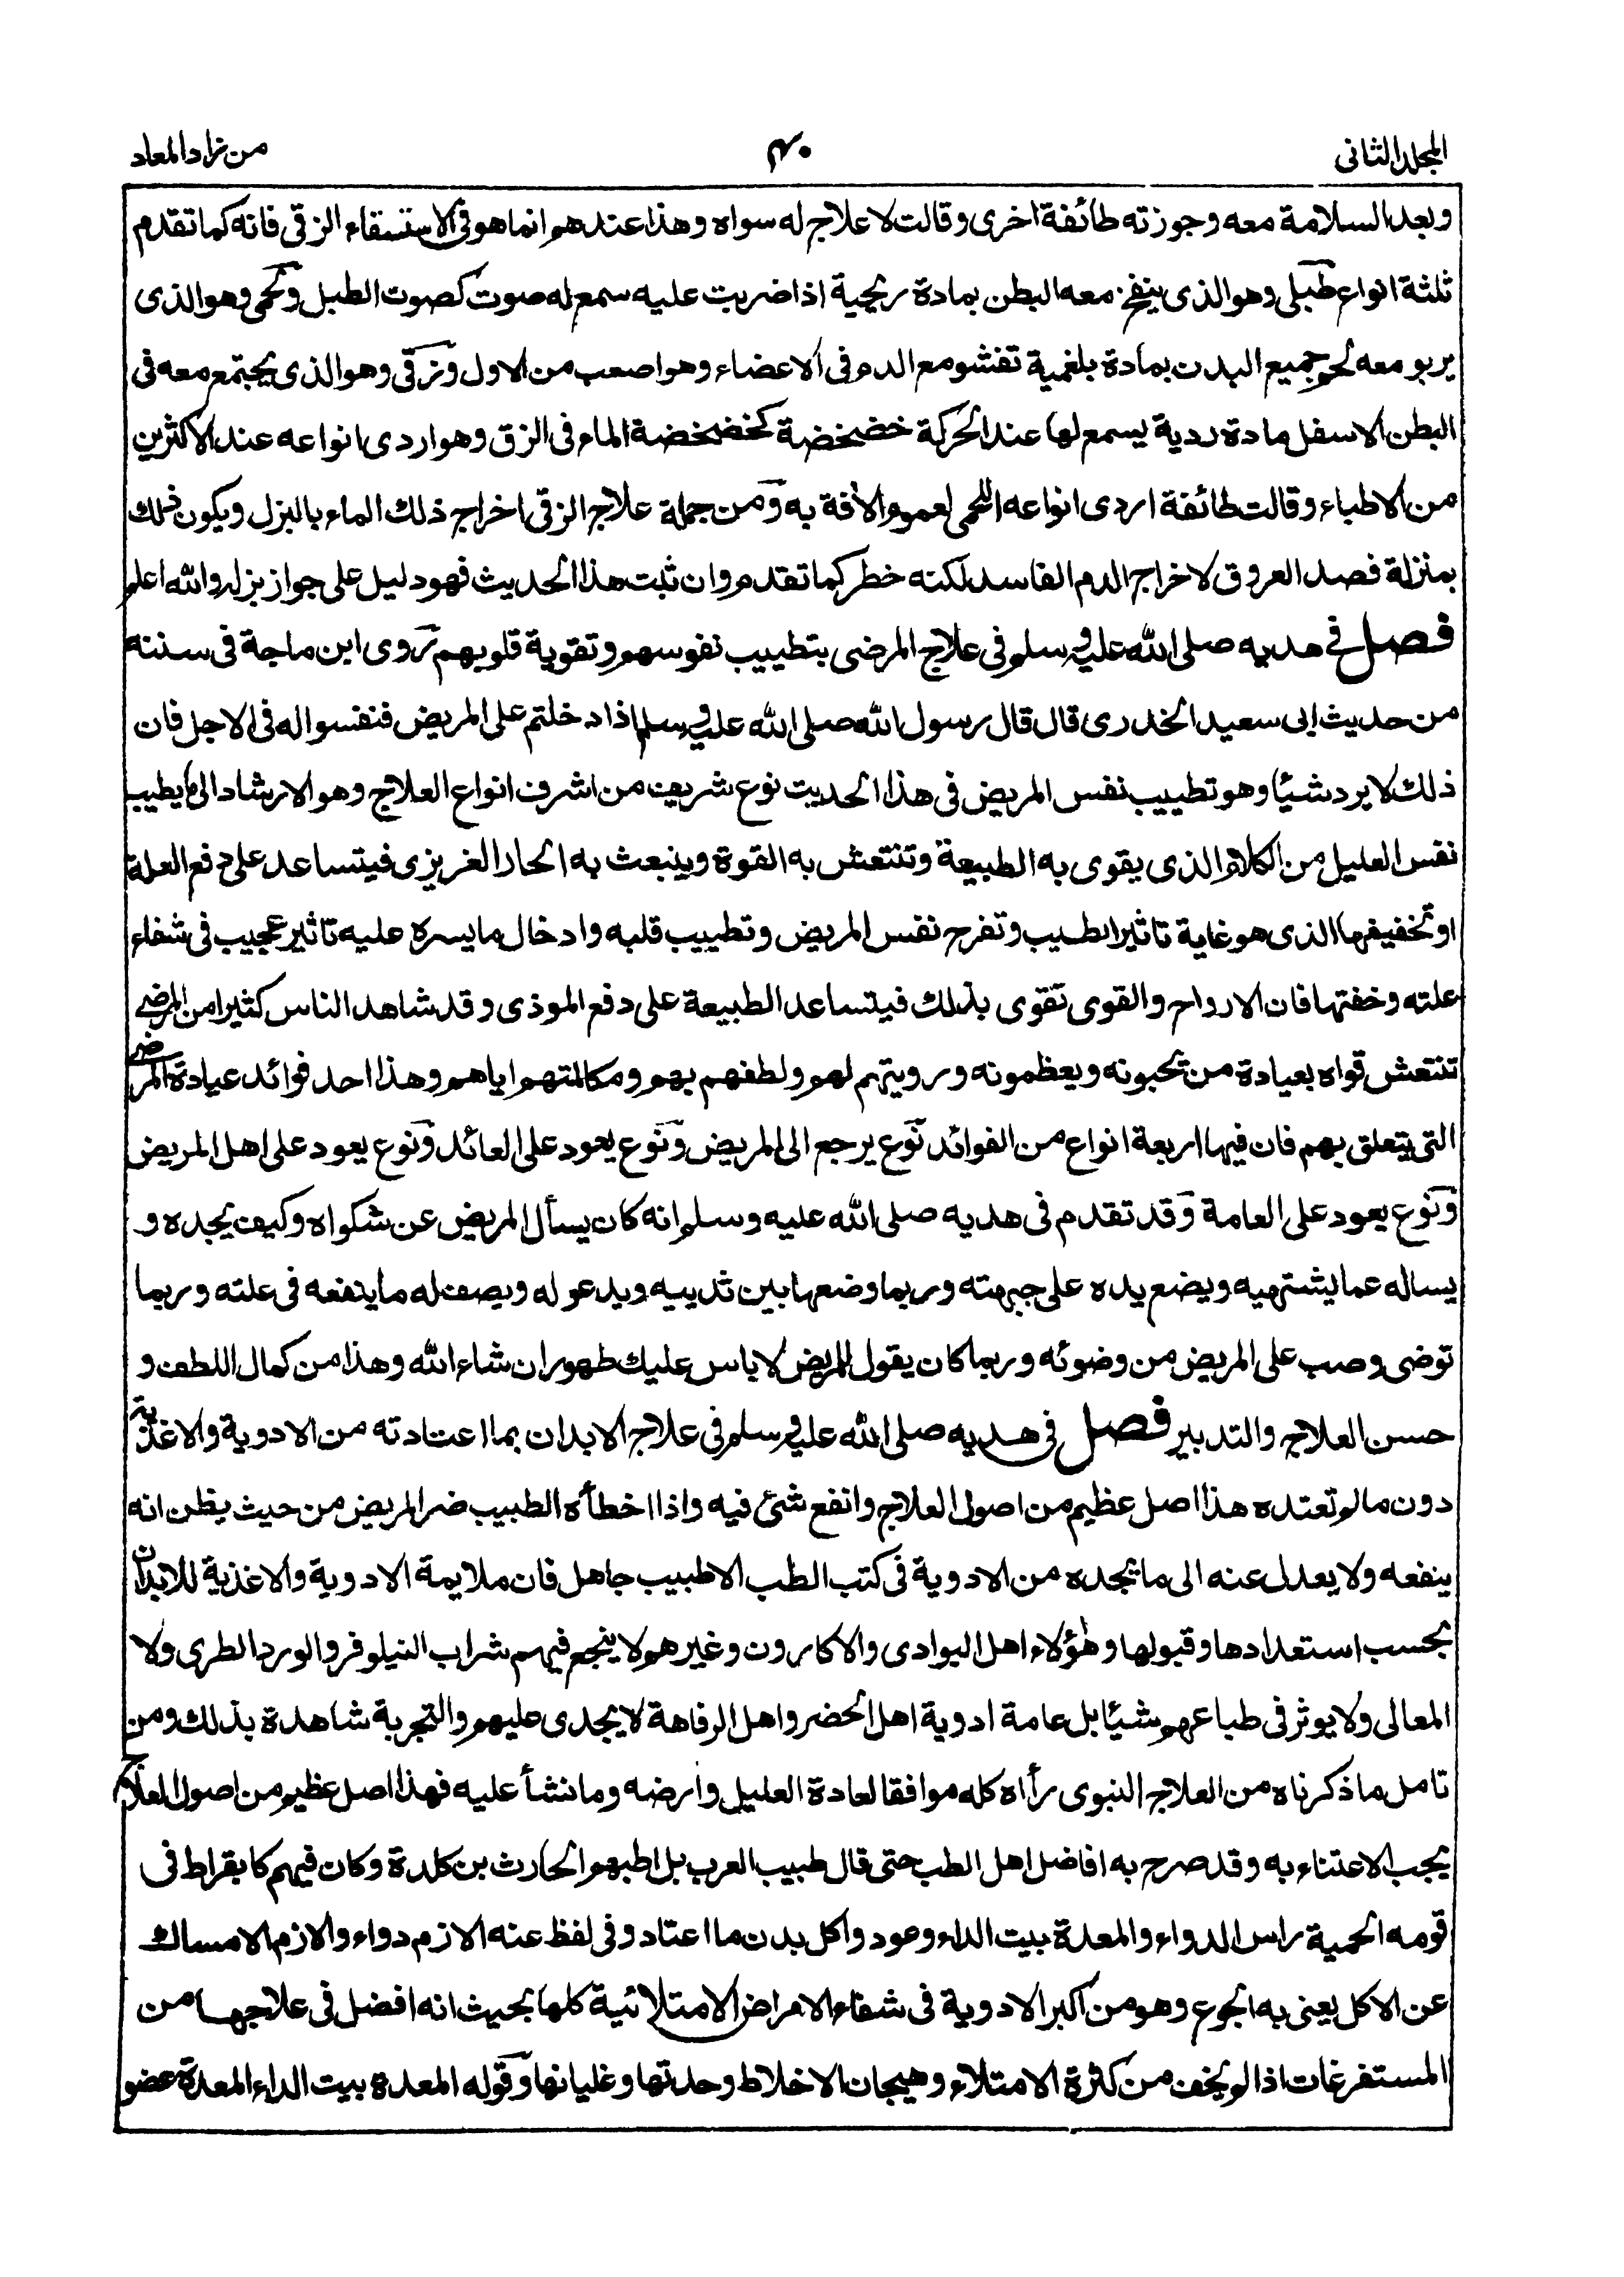 المجلد الثانى
۴۰
من زاد المعاد
وبعد السلامة معه وجوزته طائفة اخرى وقالت لا علاج له سواه وهذا عندهم انما هو فى الاستسقاء الزقى فانه كما تقدم
ثلثة انواع طبلى وهو الذى ينتفخ معه البطن بمادة ريحية اذا ضربت عليه سمع له صوت كصوت الطبل ولحمى وهو الذى
يربو معه لحم جميع البدن بمادة بلغمية تفشو مع الدم فى الاعضاء وهو اصعب من الاول وزقى وهو الذى يجتمع معه فى
البطن الاسفل مادة ردية يسمع لها عند الحركة خضخضة كخضخضة الماء فى الزق وهو اردى انواعه عند الاكثرين
من الاطباء وقالت طائفة اردى انواعه اللحمى لعموم الأفة به ومن جملة علاج الزقى اخراج ذلك الماء بالبزل ويكون ذلك
بمنزلة فصد العروق لاخراج الدم الفاسد لكنه خطر كما تقدم وان ثبت هذا الحديث فهو دليل على جواز بزله والله اعلم
فصل فى هديه صلى الله عليه وسلم فى علاج المرضى بتطييب نفوسهم وتقوية قلوبهم روى ابن ماجة فى سننه
من حديث ابى سعيد الخدرى قال قال رسول الله صلى الله عليه وسلم اذا دخلتم على المريض فنفسوا له فى الاجل فان
ذلك لا يرد شيئا وهو تطييب نفس المريض فى هذا الحديث نوع شريف من اشرف انواع العلاج وهو الارشاد الى ما يطيب
نفس العليل من الكلام الذى يقوى به الطبيعة وتنتعش به القوة وينبعث به الحار الغريزى فيتساعد على دفع العلة
او تخفيفها الذى هو غاية تاثير الطبيب وتفرح نفس المريض وتطييب قلبه وادخال ما يسره عليه تاثير عجيب فى شفاء
علته وخفتها فان الارواح والقوى تقوى بذلك فيتساعد الطبيعة على دفع الموذى وقد شاهد الناس كثيرا من المرضى
تنتعش قواه بعيادة من يحبونه ويعظمونه ورويتهم لهم ولطفهم بهم ومكالمتهم اياهم وهذا احد فوائد عيادة المرضى
التى يتعلق بهم فان فيها اربعة انواع من الفوائد نوع يرجع الى المريض ونوع يعود على العائد ونوع يعود على اهل المريض
ونوع يعود على العامة وقد تقدم فى هديه صلى الله عليه وسلم انه كان يسأل المريض عن شكواه وكيف يجده و
يساله عما يشتهيه ويضع يده على جبهته وربما وضعها بين ثدييه ويدعو له ويصف له ما ينفعه فى علته وربما
توضى وصب على المريض من وضوئه وربما كان يقول للمريض لا باس عليك طهور ان شاء الله وهذا من كمال اللطف و
حسن العلاج والتدبير فصل فى هديه صلى الله عليه وسلم فى علاج الابدان بما اعتادته من الادوية والاغذية
دون ما لم تعتده هذا اصل عظيم من اصول العلاج وانفع شئ فيه واذا اخطأه الطبيب ضر المريض من حيث يظن انه
ينفعه ولا يعدل عنه الى ما يجده من الادوية فى كتب الطب الا طبيب جاهل فان ملايمة الادوية والاغذية للابدان
بحسب استعدادها وقبولها وهؤلاء اهل البوادى والاكارون وغيرهم لا ينجع فيهم شراب النيلوفر والورد الطرى ولا
المعالى ولا يوثر فى طباعهم شيئا بل عامة ادوية اهل الحضر واهل الرفاهة لا يجدى عليهم والتجربة شاهدة بذلك ومن
تامل ما ذكرناه من العلاج النبوى رأاه كله موافقا لعادة العليل وارضه وما نشأ عليه فهذا اصل عظيم من اصول العلاج
يجب الاعتناء به وقد صرح به افاضل اهل الطب حتى قال طبيب العرب بل اطبهم الحارث بن كلدة وكان فيهم كابقراط فى
قومه الحمية راس الدواء والمعدة بيت الداء وعودوا كل بدن ما اعتاد وفى لفظ عنه الازم دواء والازم الامساك
عن الاكل يعنى به الجوع وهو من اكبر الادوية فى شفاء الامراض الامتلائية كلها بحيث انه افضل فى علاجها من
المستفرغات اذا لم يخف من كثرة الامتلاء وهيجان الاخلاط وحدتها وغليانها وقوله المعدة بيت الداء المعدة عضو